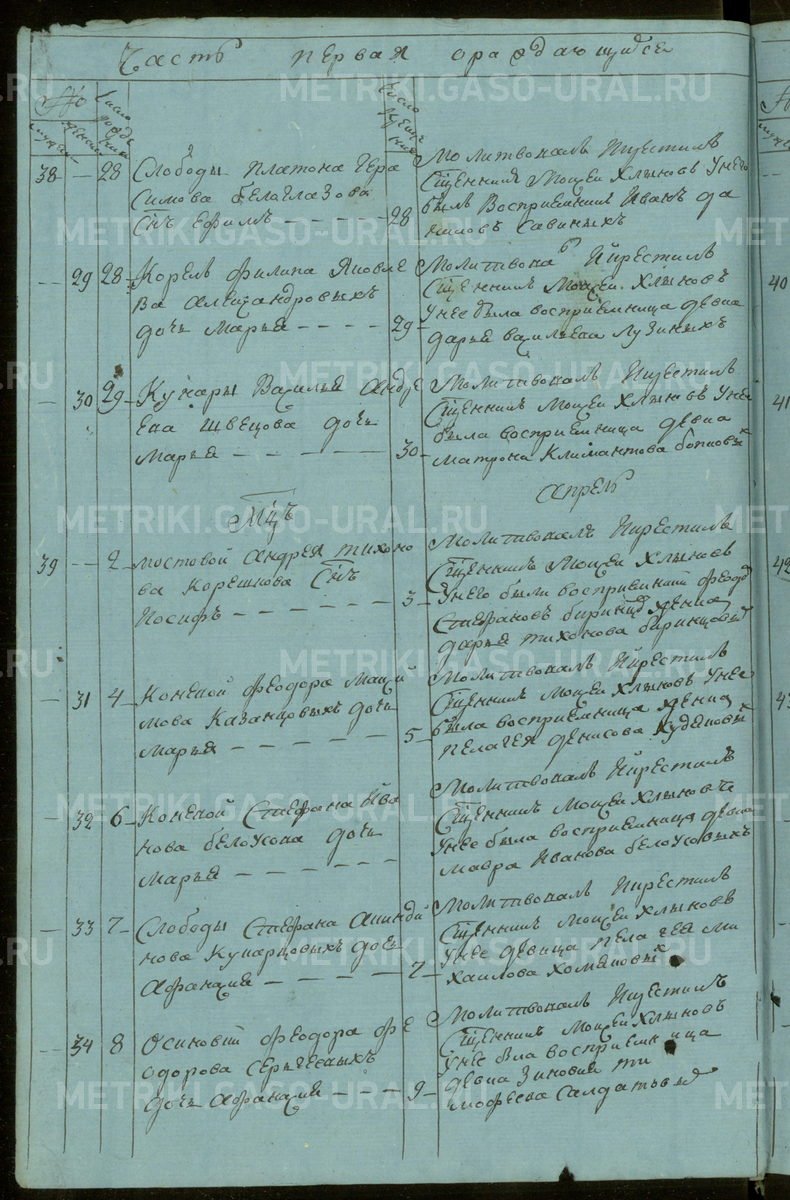 Часть первая ораждающихсе
No
Число рожденiя
Число крещенiя
мужеск женск
38 — 28 Слободы платона гера
симова белаглазова
сн҃ъ Ефимъ — — — — 28
молитвовалъ Икрестилъ
Сщ҃енникъ Моисеи Хлыновъ Унего
былъ Восприемникъ Иванъ да
ниловъ Савиныхъ
— 29 28 Корелъ филипа Яковле
ва Александровыхъ
дочь Марья — — — — 29
Молитвова Икрестилъ
Сщ҃енникъ Моисеи Хлыновъ
Унее была восприемница девка
дарья васильева Лузиныхъ
— 30 29 Кунары Василья Андре
ева Швецова дочь
Марья — — — — — 30
Молитвовалъ Икрестилъ
Сщ҃енникъ Моисеи Хлыновъ Унее
была восприемница девка
матрона Климантова
Мц҃ъ Апрель
39 — 2 мостовой Андрея тихоно
ва Корешкова Сн҃ъ
Иосифъ — — — — — — 3
Молитвовалъ Икрестилъ
Сщ҃енникъ Моисеи Хлыновъ
Унего были восприемники феодо
Стефановъ
дарья тихонова
— 31 4 Коневой феодора Макси
мова Казанцовыхъ дочь
марья — — — — — 5
Молитвовалъ Икрестилъ
Сщ҃енникъ Моисеи Хлыновъ Унее
была восприемница женка
пелагея денисова
— 32 6 Коневой Стефана Ива
нова белоусова дочь
Марья — — — — —
Молитвовалъ Икрестилъ
Сщ҃енникъ Моисеи Хлыновъ
Унее была восприемница девка
мавра Иванова белоусовыхъ
— 33 7 Слободы Стефана Акинди
нова Кунарцовыхъ дочь
Афанасия — — — — — 7
Молитвовалъ Икрестилъ
Сщ҃енникъ Моисеи Хлыновъ
Унее девица пелагея ми
хаилова Хомяковыхъ
— 34 8 Осиновки феодора фе
одорова Сергеевыхъ
дочь Афанасия — — — 9
Молитвовалъ Икрестилъ
Сщ҃енникъ Моисеи Хлыновъ
Унее была восприемница
девка Зиновия ти
мофеева Салдатовых
METRIKI.GASO-URAL.RU